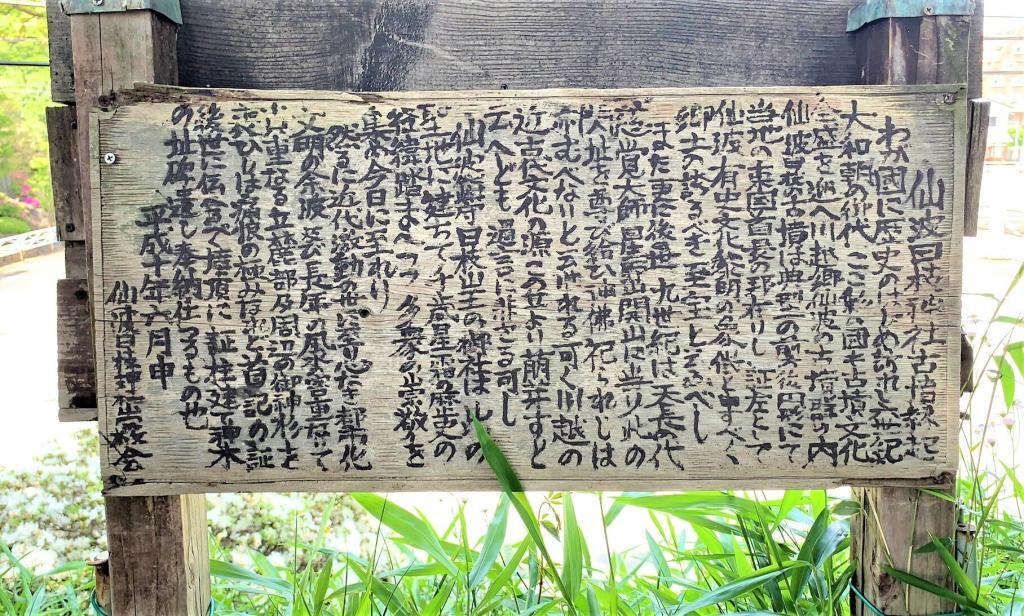 仙波日枝神社古墳縁起
わが國に歴史のはじめ訪れし六世紀
大和朝の併代 ここ彩の國も古墳文化
全盛を迎へ川越郷仙波の古墳群の内
仙波日枝古墳は典型の前方後円形にて
当地の東国首長の邦在りし証左として
仙波有史文化黎明の象徴とすべく
郷土の誇るべき至宝と云ふべし
また更に後世 九世紀は天長代
慈覚大師 星野山開山に当り此の
陵址を尊び給ひ 仙佛祀られしは
亦むべなりと云はれる可く川越の
近古代文化の源こゝせより萌芽すと
云へども 過言に非ざる可し
仙波 日枝山王の御神は此の
聖地に建ちて千歳星霜の歴史の
経緯踏まへつつ 多衆の崇敬を
集め今日に至れり
然るに近代激動の世に寄心なき都市化
文明の余波 及び長年の風水害重なりて
小山重なる丘麓部及周辺の御神杉を
哀ひしは痛恨の極みなれど首記の証
後世に伝ふべく墳頂に証柱建立 弥
の址碑遺し奉納仕つるもの也
平成十年六月申
仙波日枝神社崇敬会